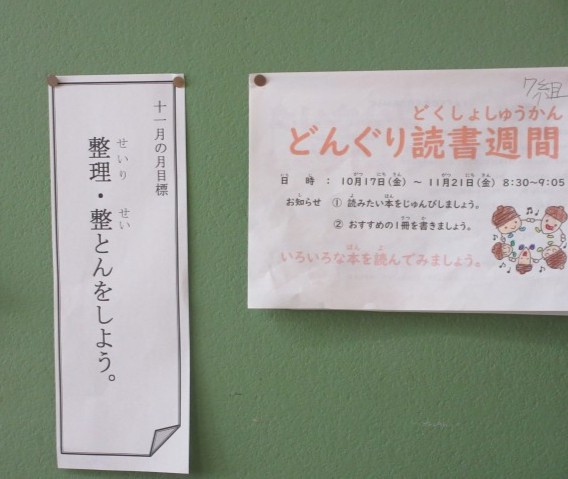 十一月の月目標
せいり せい
整理・整とんをしよう。
7組
どくしょしゅうかん
どんぐり読書週間
にち じ がつ にち きん がつ にち きん
日 時 : 10月17日(金) ~ 11月21日(金) 8:30~9:05
し よ ほん
お知らせ ① 読みたい本をじゅんびしましょう。
さつ か
② おすすめの1冊を書きましょう。
ほん よ
いろいろな本を読んでみましょう。